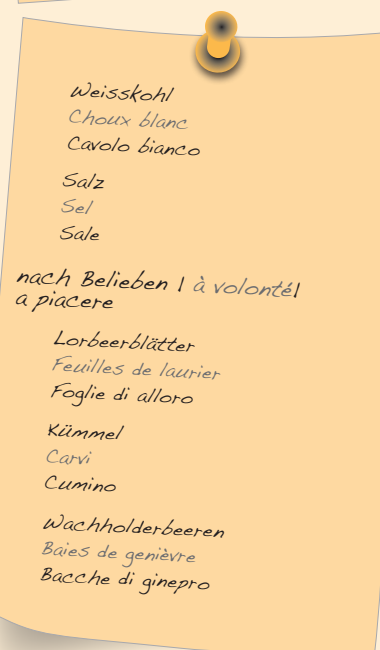 Weisskohl
Choux blanc
Cavolo bianco
Salz
Sel
Sale
nach Belieben / à volonté/
a piacere
Lorbeerblätter
Feuilles de laurier
Foglie di alloro
Kümmel
Carvi
Cumino
Wachholderbeeren
Baies de genièvre
Bacche di ginepro